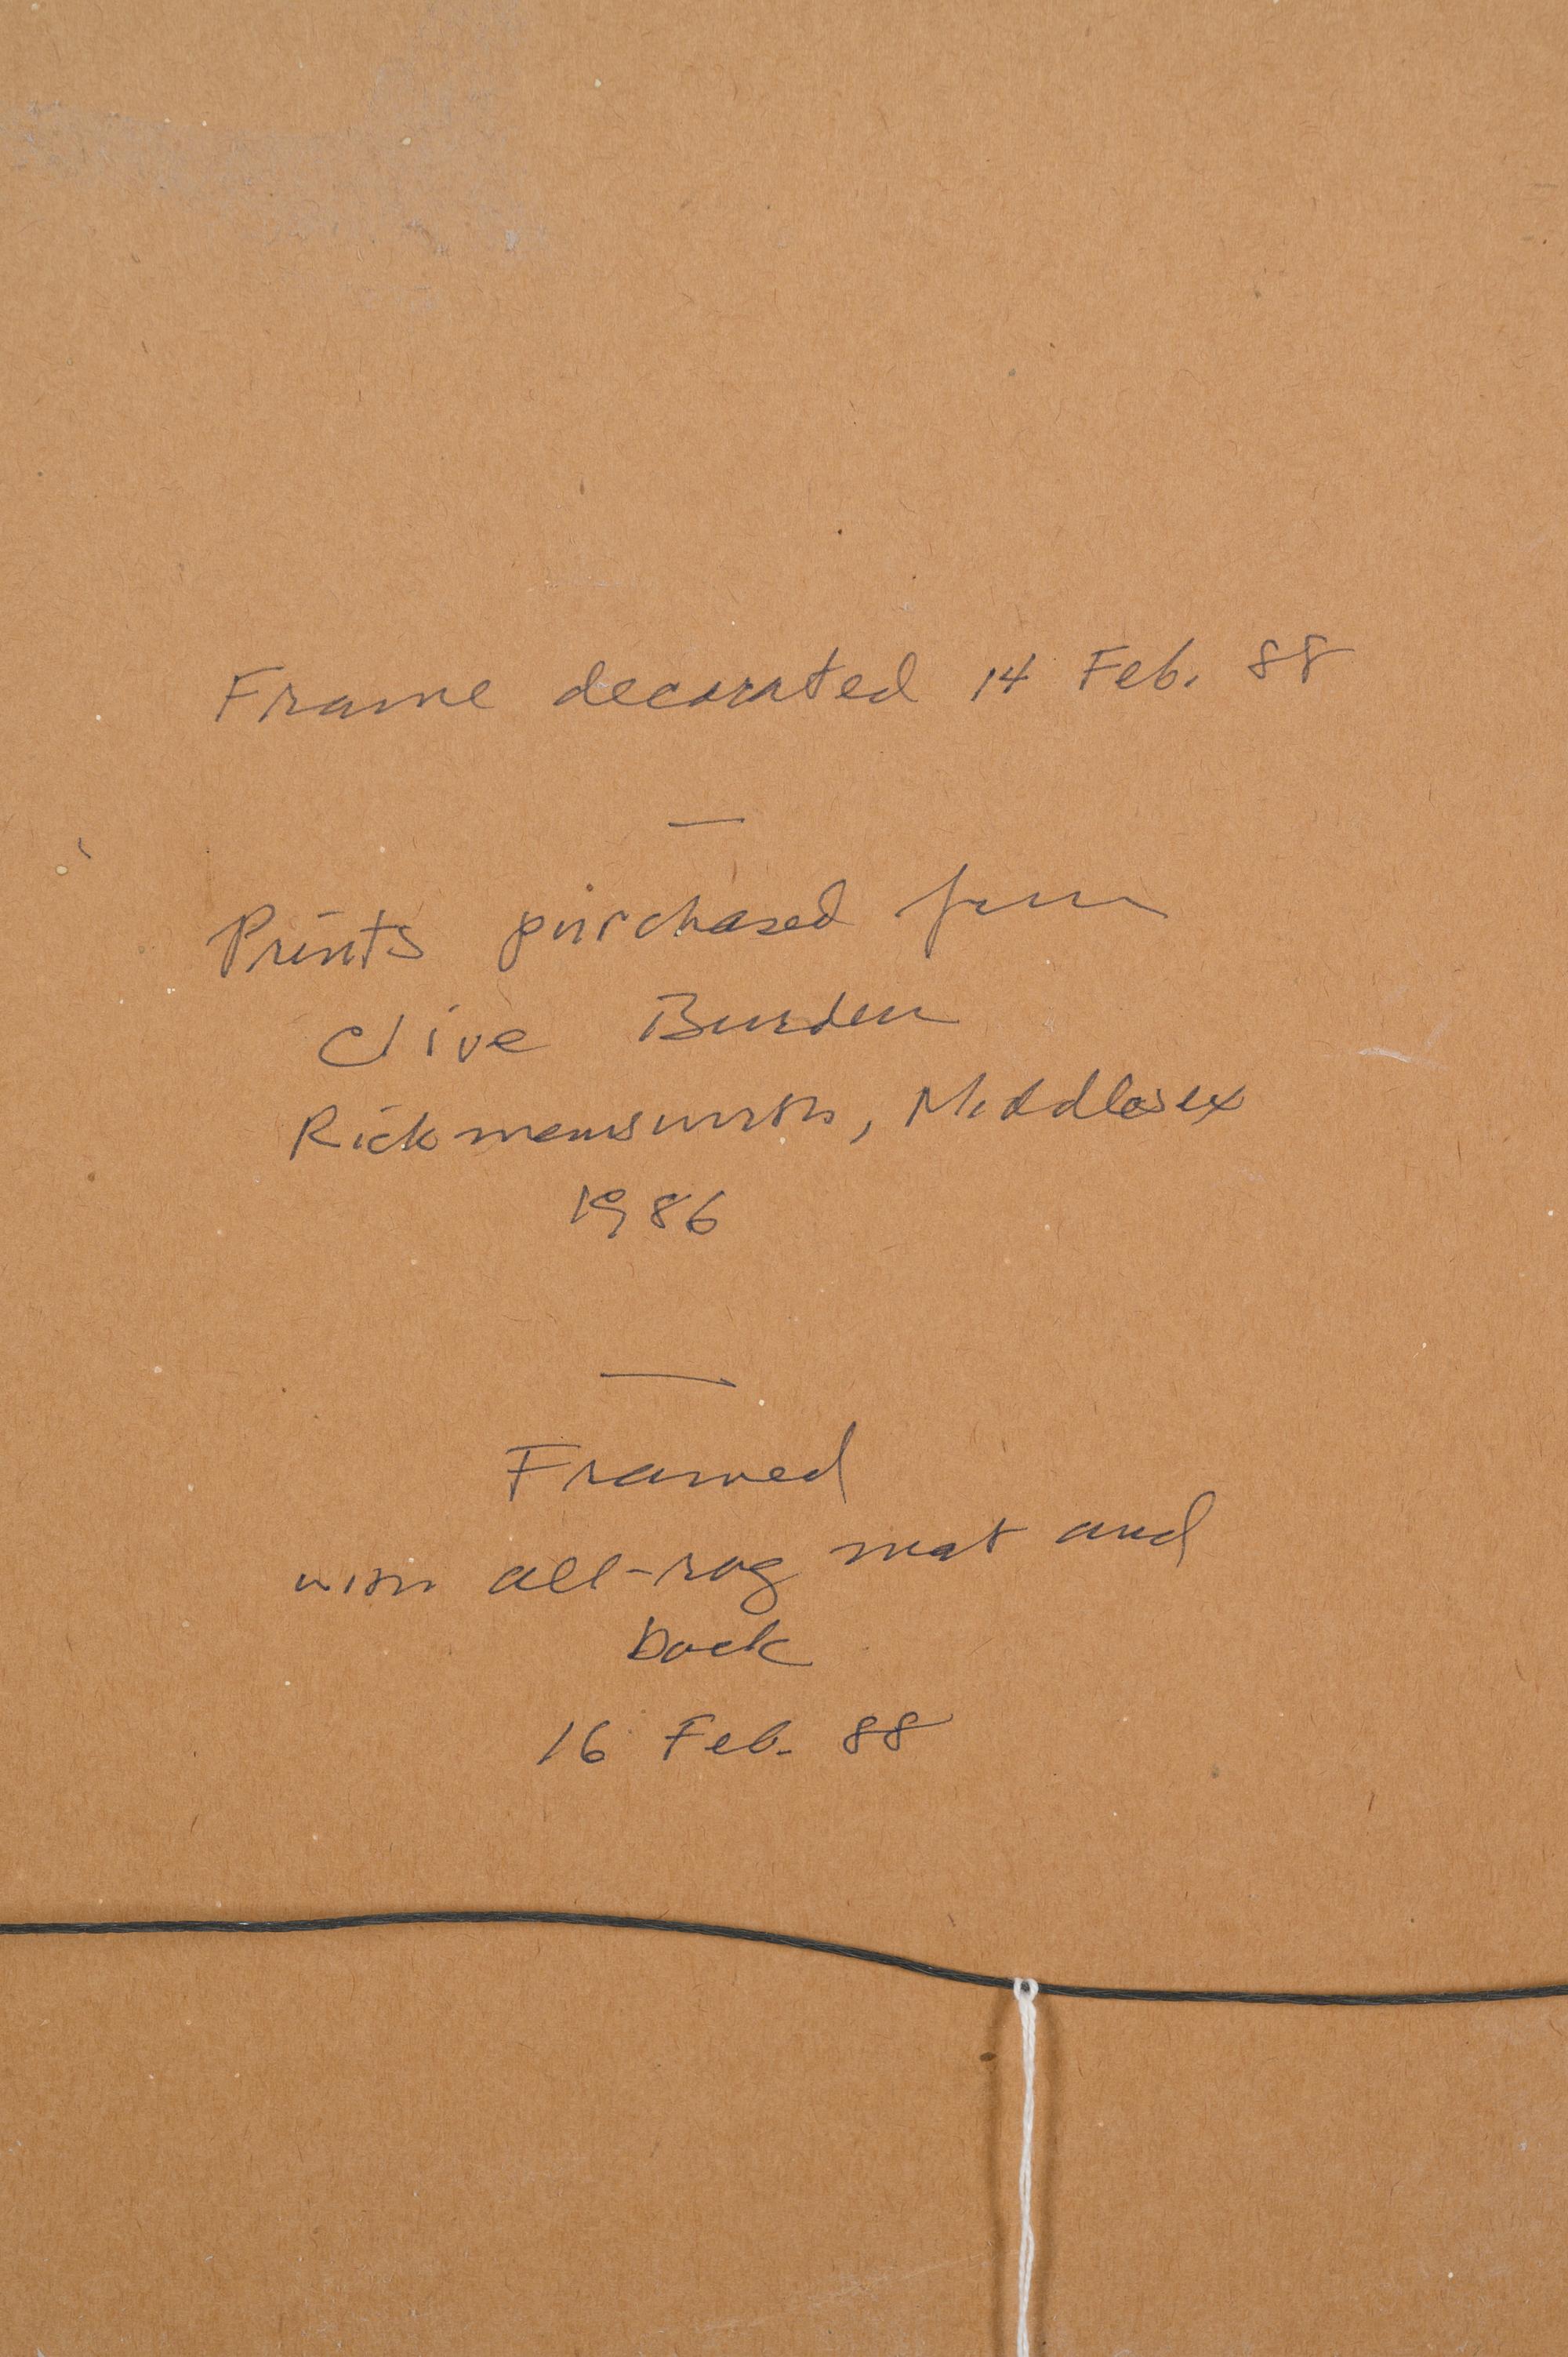 Frame decorated 14 Feb. 88
—
Prints purchased from
Clive Burden
Rickmansworth, Middlesex
1986
—
Framed
with all-rag mat and
back
16 Feb. 88